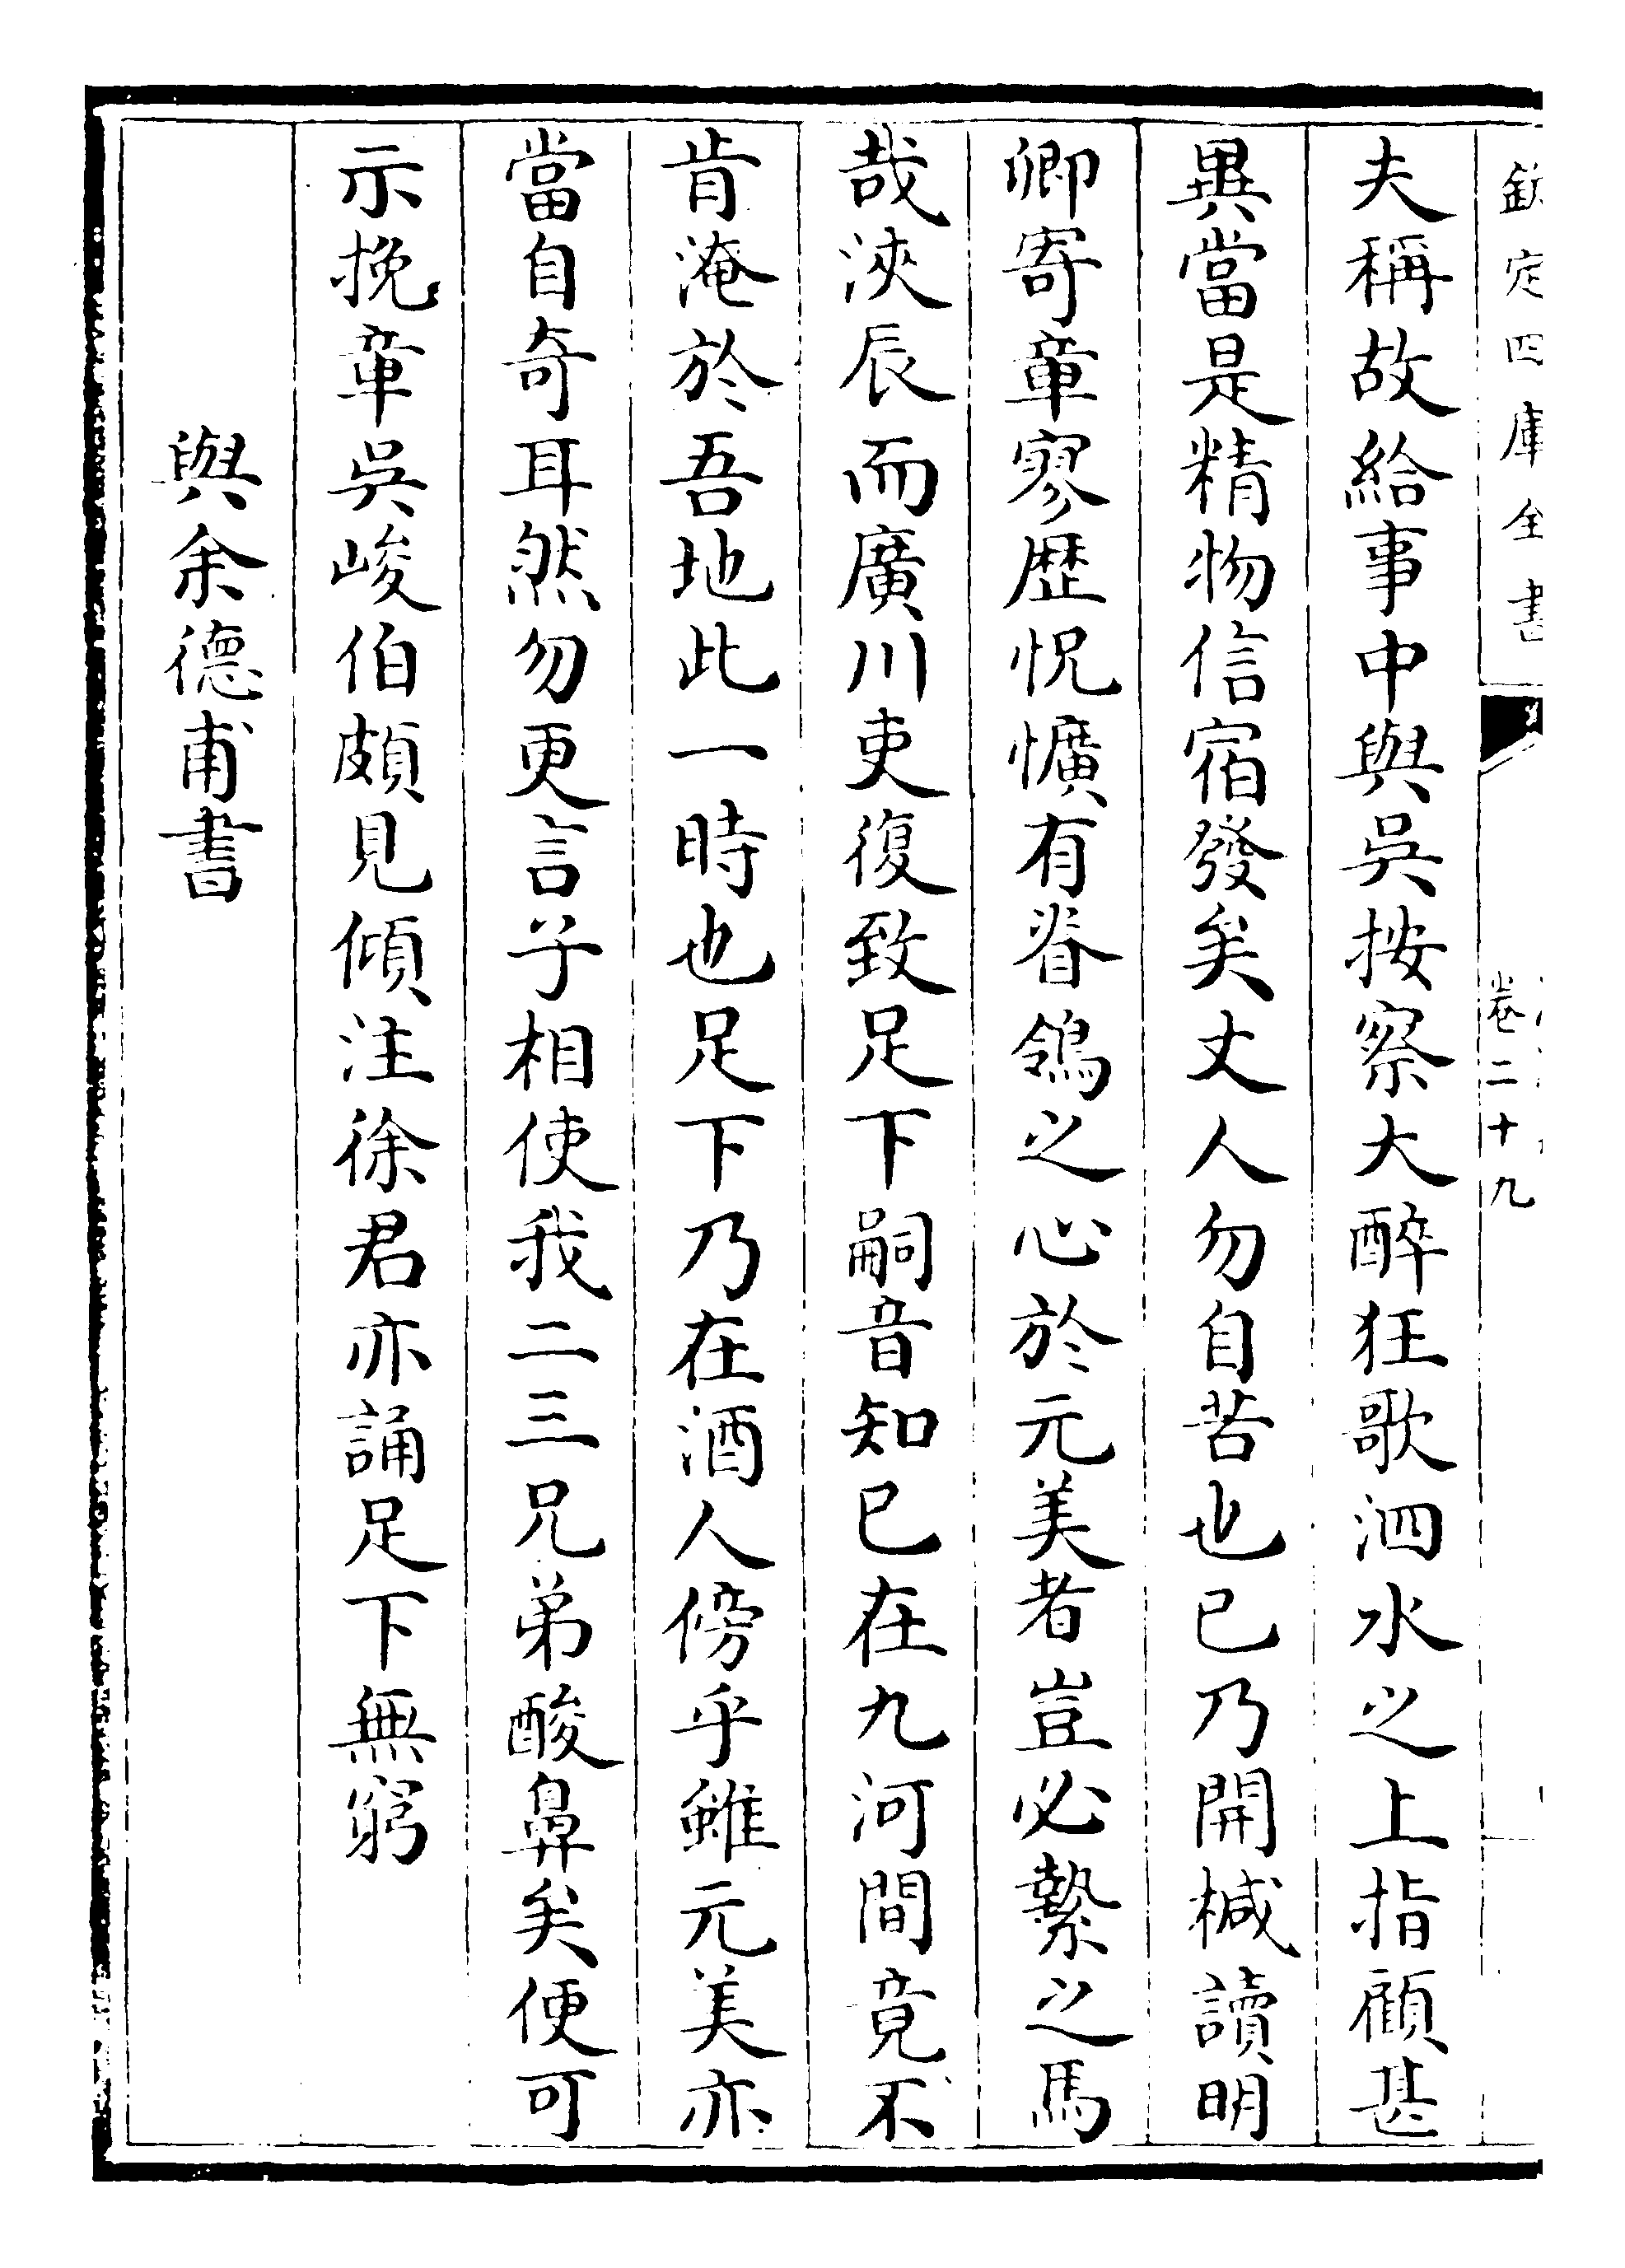 欽定四庫全書
卷二十九
夫稱故給事中與吳按察大醉狂歌泗水之上指顧甚
異當是精物信宿發矣丈人勿自苦也已乃開椷讀明
卿寄章寥歴怳懭有眷鴒之心於元美者豈必縶之馬
哉浹辰而廣川吏復致足下嗣音知已在九河間竟不
肯淹於吾地此一時也足下乃在酒人傍乎雖元美亦
當自奇耳然勿更言子相使我二三兄弟酸鼻矣便可
示挽章吳峻伯頗見傾注徐君亦誦足下無窮
與余德甫書